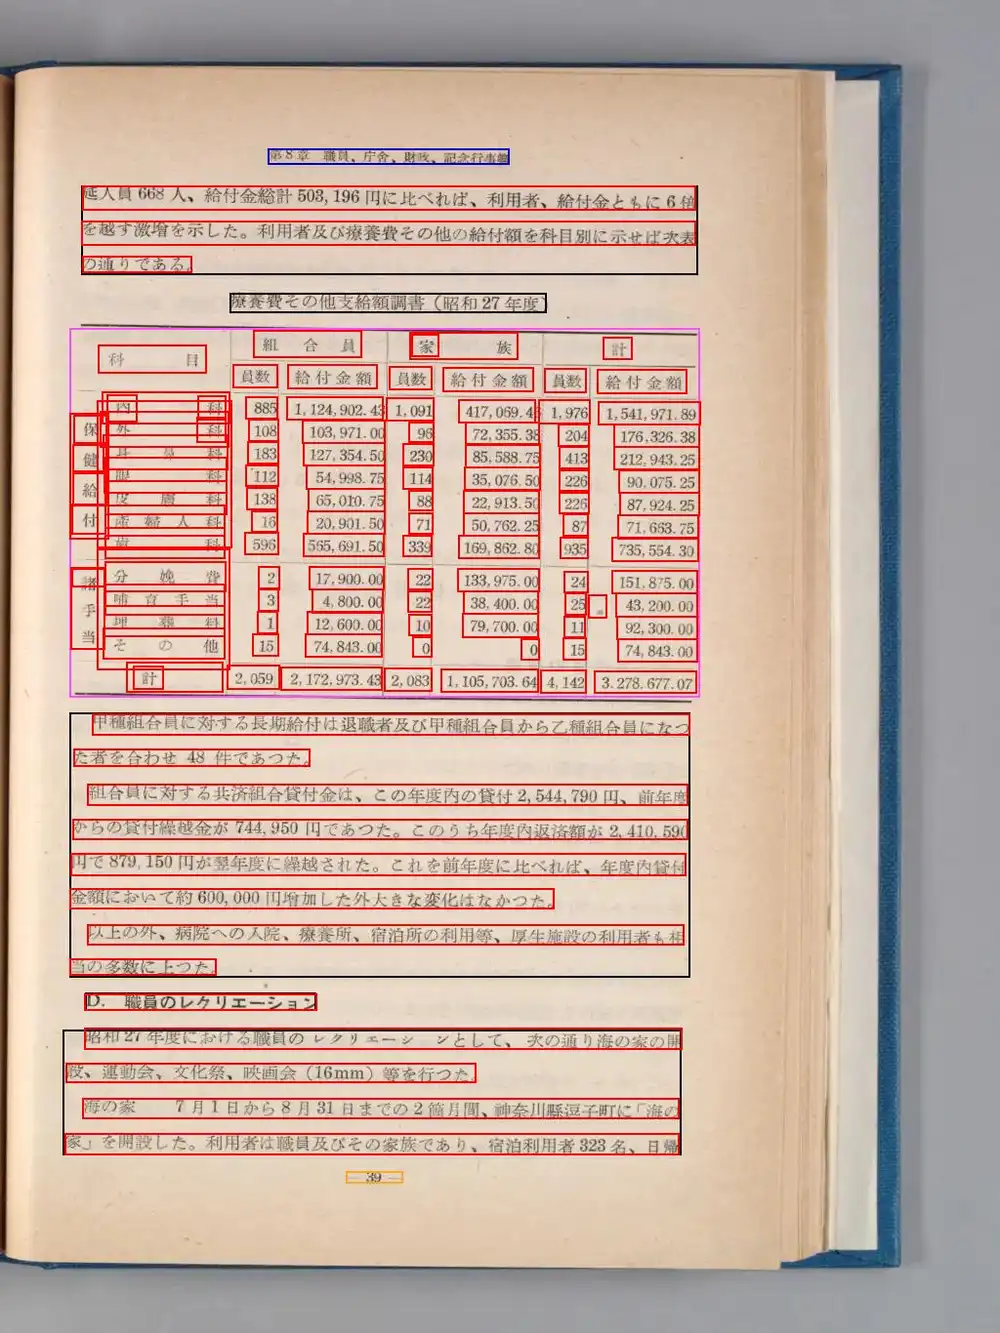 第8章 職員、庁舎、財政、記念行事等
延人員 668 人、給付金総計 503,196 円に比べれば、利用者、給付金ともに 6 倍
を越す激増を示した。利用者及び療養費その他の給付額を科目別に示せば次表
の通りである。
療養費その他支給額調書（昭和 27 年度）
科 目 組 合 員 家 族 計
員数 給付金額 員数 給付金額 員数 給付金額
保健給付
内 科 885 1,124,902.43 1,091 417,069.4 1,976 1,541,971.89
外 科 108 103,971.00 96 72,355.38 204 176,326.38
耳 鼻 科 183 127,354.50 230 85,588.75 413 212,943.25
眼 科 112 54,998.75 114 35,076.50 226 90,075.25
皮 膚 科 138 65,010.75 88 22,913.50 226 87,924.25
産 婦 人 科 16 20,901.50 71 50,762.25 87 71,663.75
歯 科 596 565,691.50 339 169,862.80 935 735,554.30
諸手当
分 娩 費 2 17,900.00 22 133,975.00 24 151,875.00
哺 育 手 当 3 4,800.00 22 38,400.00 25 43,200.00
埋 葬 料 1 12,600.00 10 79,700.00 11 92,300.00
そ の 他 15 74,843.00 0 0 15 74,843.00
計 2,059 2,172,973.43 2,083 1,105,703.64 4,142 3.278.677.07
甲種組合員に対する長期給付は退職者及び甲種組合員から乙種組合員になつ
た者を合わせ 48 件であつた。
組合員に対する共済組合貸付金は、この年度内の貸付 2,544,790 円、前年度
からの貸付繰越金が 744,950 円であつた。このうち年度内返済額が 2,410,590
円で 879,150 円が翌年度に繰越された。これを前年度に比べれば、年度内貸付
金額において約 600,000 円増加した外大きな変化はなかつた。
以上の外、病院への入院、療養所、宿泊所の利用等、厚生施設の利用者も相
当の多数に上つた。
D. 職員のレクリエーション
昭和 27 年度における職員のレクリエーションとして、次の通り海の家の開
設、運動会、文化祭、映画会（16mm）等を行つた。
海の家 7 月 1 日から 8 月 31 日までの 2 箇月間、神奈川縣逗子町に「海の
家」を開設した。利用者は職員及びその家族であり、宿泊利用者 323 名、日帰
— 39 —